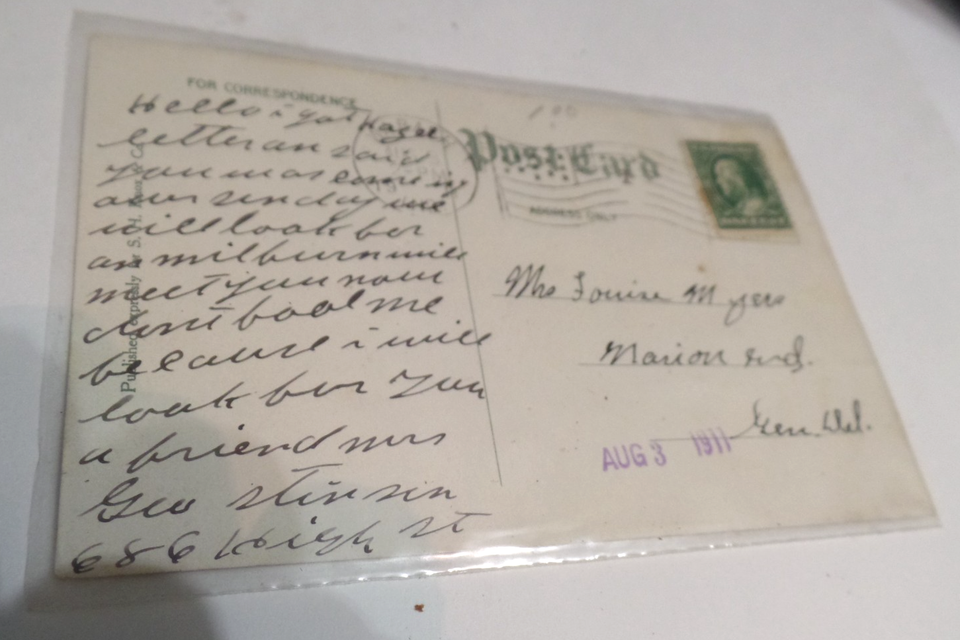 FOR CORRESPONDENCE
Hello i got Hazel
letter an said
you was coming
over sunday we
will look for
an milburn will
meet you now
dont fool me
because i will
look for you
a friend mrs
Geo stinson
686 High st
Published expressly for S. H.
Post Card
ADDRESS ONLY
Mrs Louise Myers
Marion Ind.
Gen. Del.
AUG 3 1911